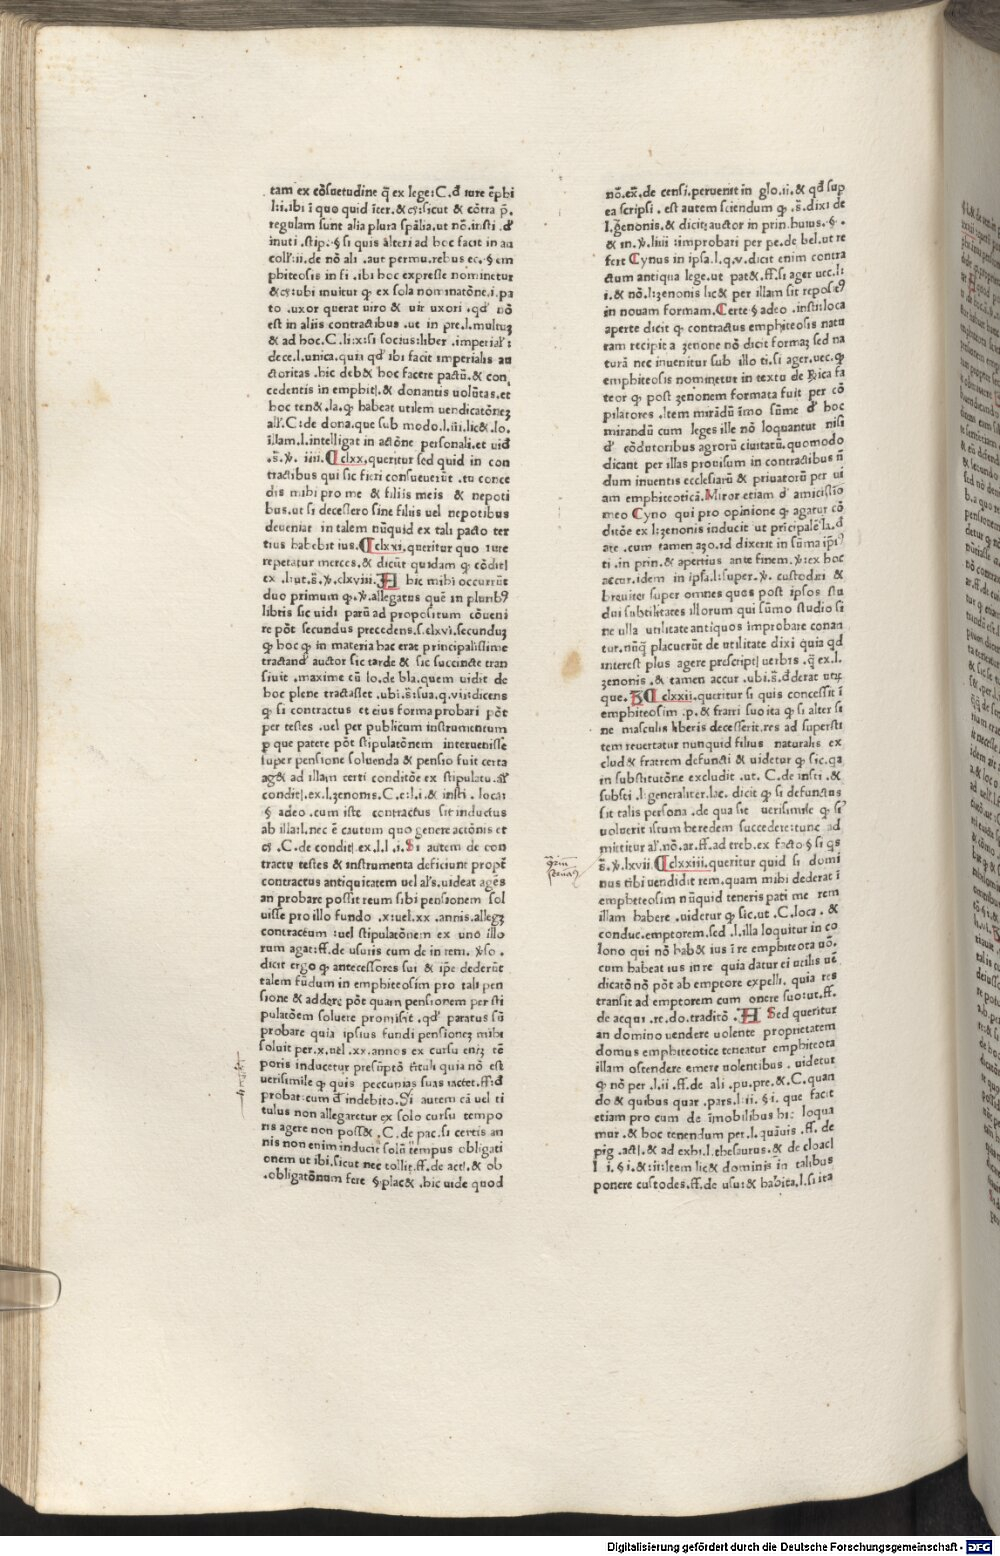 tam ex cōsuetudine q̄ ex lege: C. đ iure ēphi
l:i.ibi ī quo quid iter.&c̄:sicut & cōtra p̄.
regulam sunt alia plura spālia.ut nō.insti .đ
inuti .stip: § si quis alteri ad hoc facit in au
coll:ii.de nō ali .aut permu.rebus ec. § em
phiteosis in fi .ibi hoc expresse nominetur
&c̄:ubi inuitur ꝙ ex sola nominatōne.i.pa
to .uxor querat uiro & uir uxori .qđ nō
est in aliis contractibus .ut in pre.l.multuꝫ
& ad hoc.C.li:x:si socius:liber .imperial:
dece.l.unica.quia qđ ibi facit imperialis au
ctoritas .hic deb& hoc facere pactū.& con
cedentis in emphit.& donantis uolūtas.et
hoc ten& .la.ꝙ habeat utilem uendicatōneꝫ
al.C:de dona.que sub modo.l.iii.lic& .lo.
illam.l.intelligat in actōne personali.et uiđ
.s̄.ꝟ. iiii.¶ clxx.queritur sed quid in con
tractibus qui sic fieri consueuerūt .tu conce
dis mihi pro me & filiis meis & nepoti
bus.ut si decessero sine filiis uel nepotibus
deueniat in talem nūquid ex tali pacto ter
tius habebit ius.¶ clxxi.queritur quo iure
repetatur merces.& dicūt quidam ꝙ cōdit
ex .l:ut.s̄.ꝟ.clxviii. A hic mihi occurrūt
duo primum ꝙ.ꝟ.allegatus quē in plurib9
libris sic uidi parū ad propositum cōueni
re pōt secundus precedens.s.clxvi.secunduꝫ
ꝙ hoc ꝙ in materia hac erat principalissime
tractand auctor sic tarde & sic succincte tran
siuit .maxime cū Io.de bla.quem uidit de
hoc plene tractasset .ubi.s̄:sua.q.vii:dicens
ꝙ si contractus et eius forma probari pōt
per testes .uel per publicum instrumentum
p que patere pōt stipulatōnem interuenisse
super pensione soluenda & pensio fuit certa
ag& ad illam certi conditōe ex stipulatu.al
condit.ex.l.ʒenonis.C.e:l.i.& insti . locat
§ adeo .cum iste contractus sit inductus
ab illa:l.nec ē cautum quo genere actōnis et
c̄ .C.de condit.ex.l.l .i. Si autem de con
tractu testes & instrumenta deficiunt propē
contractus antiquitatem uel als.uideat agēs
an probare possit reum sibi pensionem sol
uisse pro illo fundo .x:uel.xx .annis.allegꝫ
contractum :uel stipulatōnem ex uno illo
rum agat:ff.de usuris cum de in rem. ꝟso .
dicit ergo ꝙ antecessores sui & ipē dederūt
talem fūdum in emphiteosim pro tali pen
sione & addere pōt quam pensionem per sti
pulatōem soluere promisit .qđ paratus sū
probare quia ipsius fundi pensioneꝫ mihi
soluit per.x.uel .xx.annos ex cursu eniꝫ tē
poris inducetur presūptō tituli quia nō est
uerisimile ꝙ quis peccunias suas iactet.ff:đ
probar:cum đ indebito.Si autem cā uel ti
tulus non allegaretur ex solo cursu tempo
ris agere non poss& .C.de pac.si certis an
nis non enim inducit solū tempus obligati
onem ut ibi.sicut nec tollit.ff.de act.& ob
.obligatōnum fere §.plac& .hic uide quod
nō.ex̄.de censi.peruenit in glo.ii.& qđ sup
ea scripsi . est autem sciendum ꝙ .s̄.dixi de
l.ʒenonis.& dicit:auctor in prin.huius. § .
& in.ꝟ.liiii :improbari per pe.de bel.ut re
fert Cynus in ipsa.l.q.v.dicit enim contra
ctum antiqua lege.ut pat&.ff.si ager uec.l:
i.& nō.l:ʒenonis lic& per illam sit reposit9
in nouam formam.Certe § adeo .insti:loca
aperte dicit ꝙ contractus emphiteosis natu
ram recipit a ʒenone nō dicit formaꝫ sed na
turā nec inuenitur sub illo ti.si ager.uec.ꝙ
emphiteosis nominetur in textu de Rica fa
teor ꝙ post ʒenonem formata fuit per cō
pilatores .Item mirādū īmo sūme đ hoc
mirandū cum leges ille nō loquantur nisi
đ cōdutoribus agrorū ciuitatū.quomodo
dicant per illas prouisum in contractibus n̄
dum inuentis ecclesiarū & priuatorū per ui
am emphiteoticā.Miror etiam đ amicissīo
meo Cyno qui pro opinione ꝙ agatur cō
ditōe ex l:ʒenonis inducit ut prīcipalē la.đ
ate .cum tamen aʒo.id dixerit in sūma ipīˀ
ti .in prin.& apertius ante finem.ꝟ:ex hoc
accur.idem in ipsa.l:super.ꝟ. custodiri &
breuiter super omnes quos post ipsos stu
dui subtilitates illorum qui sūmo studio si
ne ulla utilitate antiquos improbare conan
tur.nūꝗ placuerūt de utilitate dixi quia qđ
interest plus agere prescript uerbis .q̄ ex.l.
ʒenonis .& tamen accur .ubi.s̄.đderat utrꝫ
que. R ¶ clxxii.queritur si quis concessit ī
emphiteosim .p.& fratri suo ita ꝙ si alter si
ne masculis liberis decesserit.res ad supersti
tem reuertatur nunquid filius naturalis ex
clud& fratrem defuncti & uidetur ꝙ sic.qa
in substitutōne excludit .ut. C.de insti .&
substi .l:generaliter.Iac. dicit ꝙ si defunctus
sit talis persona .de qua sit uerisimile ꝙ si
uoluerit istum heredem succedere:tunc ad
mittitur al.nō.ar.ff.ad treb.ex facto § si qs
s̄.ꝟ.lxvii.¶ clxxiii.queritur quid si domi
nus tibi uendidit rem.quam mihi dederat ī
emphiteosim nūquid teneris pati me rem
illam habere .uidetur ꝙ sic.ut .C.loca . &
conduc.emptorem.sed .l.illa loquitur in co
lono qui nō hab& ius ī re emphiteota uō.
cum habeat ius in re quia datur ei utilis uē
dicatō nō pōt ab emptore expelli. quia res
transit ad emptorem cum onere suo:ut.ff.
de acqui .re.do.traditō . A Sed queritur
an domino uendere uolente proprietatem
domus emphiteotice teneatur emphiteota
illam ostendere emere uolentibus . uidetur
ꝙ nō per .l.ii .ff.de ali .pu.pre.&.C.quan
do & quibus quar .pars.l:ii. § i. que facit
etiam pro cum de īmobilibus hi: loqua
mur .& hoc tenendum per.l.quāuis .ff. de
pig .act.& ad exhi.l.thesaurus.& de cloac
l i. § i.& :iii:Item lic& dominis in talibus
ponere custodes.ff.de usu:& habita.l.si ita
Digitalisierung gefördert durch die Deutsche Forschungsgemeinschaft - DFG